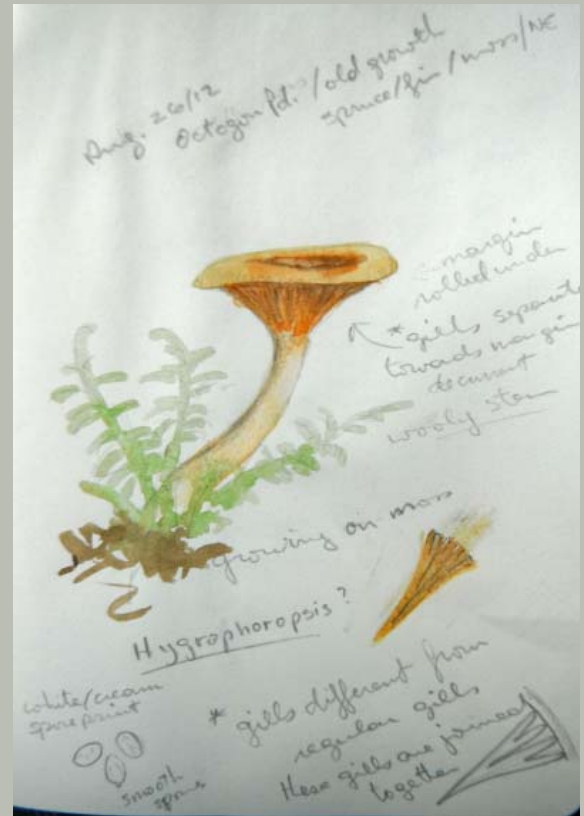 Aug. 26/12
Octogon Pd. / old growth
spruce/fir / moss/NE
margin
rolled under
* gills separate
towards margin
decurrent
wooly stem
growing on moss
Hygrophoropsis?
white/cream
spore print
smooth
spores
* gills different from
regular gills
these gills are joined
together